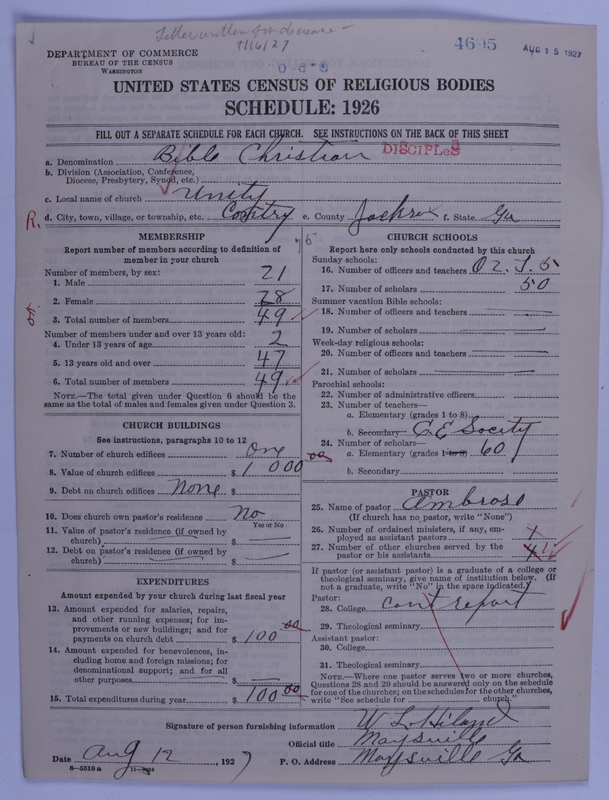 Letter written for decrease -
9/16/27
4695
AUG 15 1927
DEPARTMENT OF COMMERCE
BUREAU OF THE CENSUS
WASHINGTON
0-6-8
UNITED STATES CENSUS OF RELIGIOUS BODIES
SCHEDULE: 1926
FILL OUT A SEPARATE SCHEDULE FOR EACH CHURCH. SEE INSTRUCTIONS ON THE BACK OF THIS SHEET
a. Denomination Bible Christian DISCIPLES
b. Division (Association, Conference, Diocese, Presbytery, Synod, etc.)
c. Local name of church Unity
R. d. City, town, village, or township, etc. Contry e. County Jackson f. State Ga
MEMBERSHIP
Report number of members according to definition of member in your church
Number of members, by sex:
1. Male 21
2. Female 28
3. Total number of members 49
Number of members under and over 13 years old:
4. Under 13 years of age 2
5. 13 years old and over 47
6. Total number of members 49
NOTE.—The total given under Question 6 should be the same as the total of males and females given under Question 3.
CHURCH BUILDINGS
See instructions, paragraphs 10 to 12
7. Number of church edifices one
8. Value of church edifices $ 1 000 00
9. Debt on church edifices None $
10. Does church own pastor's residence No
Yes or No
11. Value of pastor's residence (if owned by church) $
12. Debt on pastor's residence (if owned by church) $
EXPENDITURES
Amount expended by your church during last fiscal year
13. Amount expended for salaries, repairs, and other running expenses; for improvements or new buildings; and for payments on church debt $ 100 00
14. Amount expended for benevolences, including home and foreign missions; for denominational support; and for all other purposes $
15. Total expenditures during year $ 100 00
CHURCH SCHOOLS
Report here only schools conducted by this church
Sunday schools:
16. Number of officers and teachers O 2. T. 5
17. Number of scholars 50
Summer vacation Bible schools:
18. Number of officers and teachers
19. Number of scholars
Week-day religious schools:
20. Number of officers and teachers
21. Number of scholars
Parochial schools:
22. Number of administrative officers
23. Number of teachers—
a. Elementary (grades 1 to 8)
b. Secondary C E Socity
24. Number of scholars—
a. Elementary (grades 1 to 8) 60
b. Secondary
PASTOR
25. Name of pastor Ambrose
(If church has no pastor, write "None")
26. Number of ordained ministers, if any, employed as assistant pastors
27. Number of other churches served by the pastor or his assistants
If pastor (or assistant pastor) is a graduate of a college or theological seminary, give name of institution below. (If not a graduate, write "No" in the space indicated.)
Pastor:
28. College cant report
29. Theological seminary
Assistant pastor:
30. College
31. Theological seminary
NOTE.—Where one pastor serves two or more churches, Questions 28 and 29 should be answered only on the schedule for one of the churches; on the schedules for the other churches, write "See schedule for church."
Signature of person furnishing information W L Hiland
Official title Maysville
Date Aug 12, 1927 P. O. Address Maysville Ga
8—5518 a